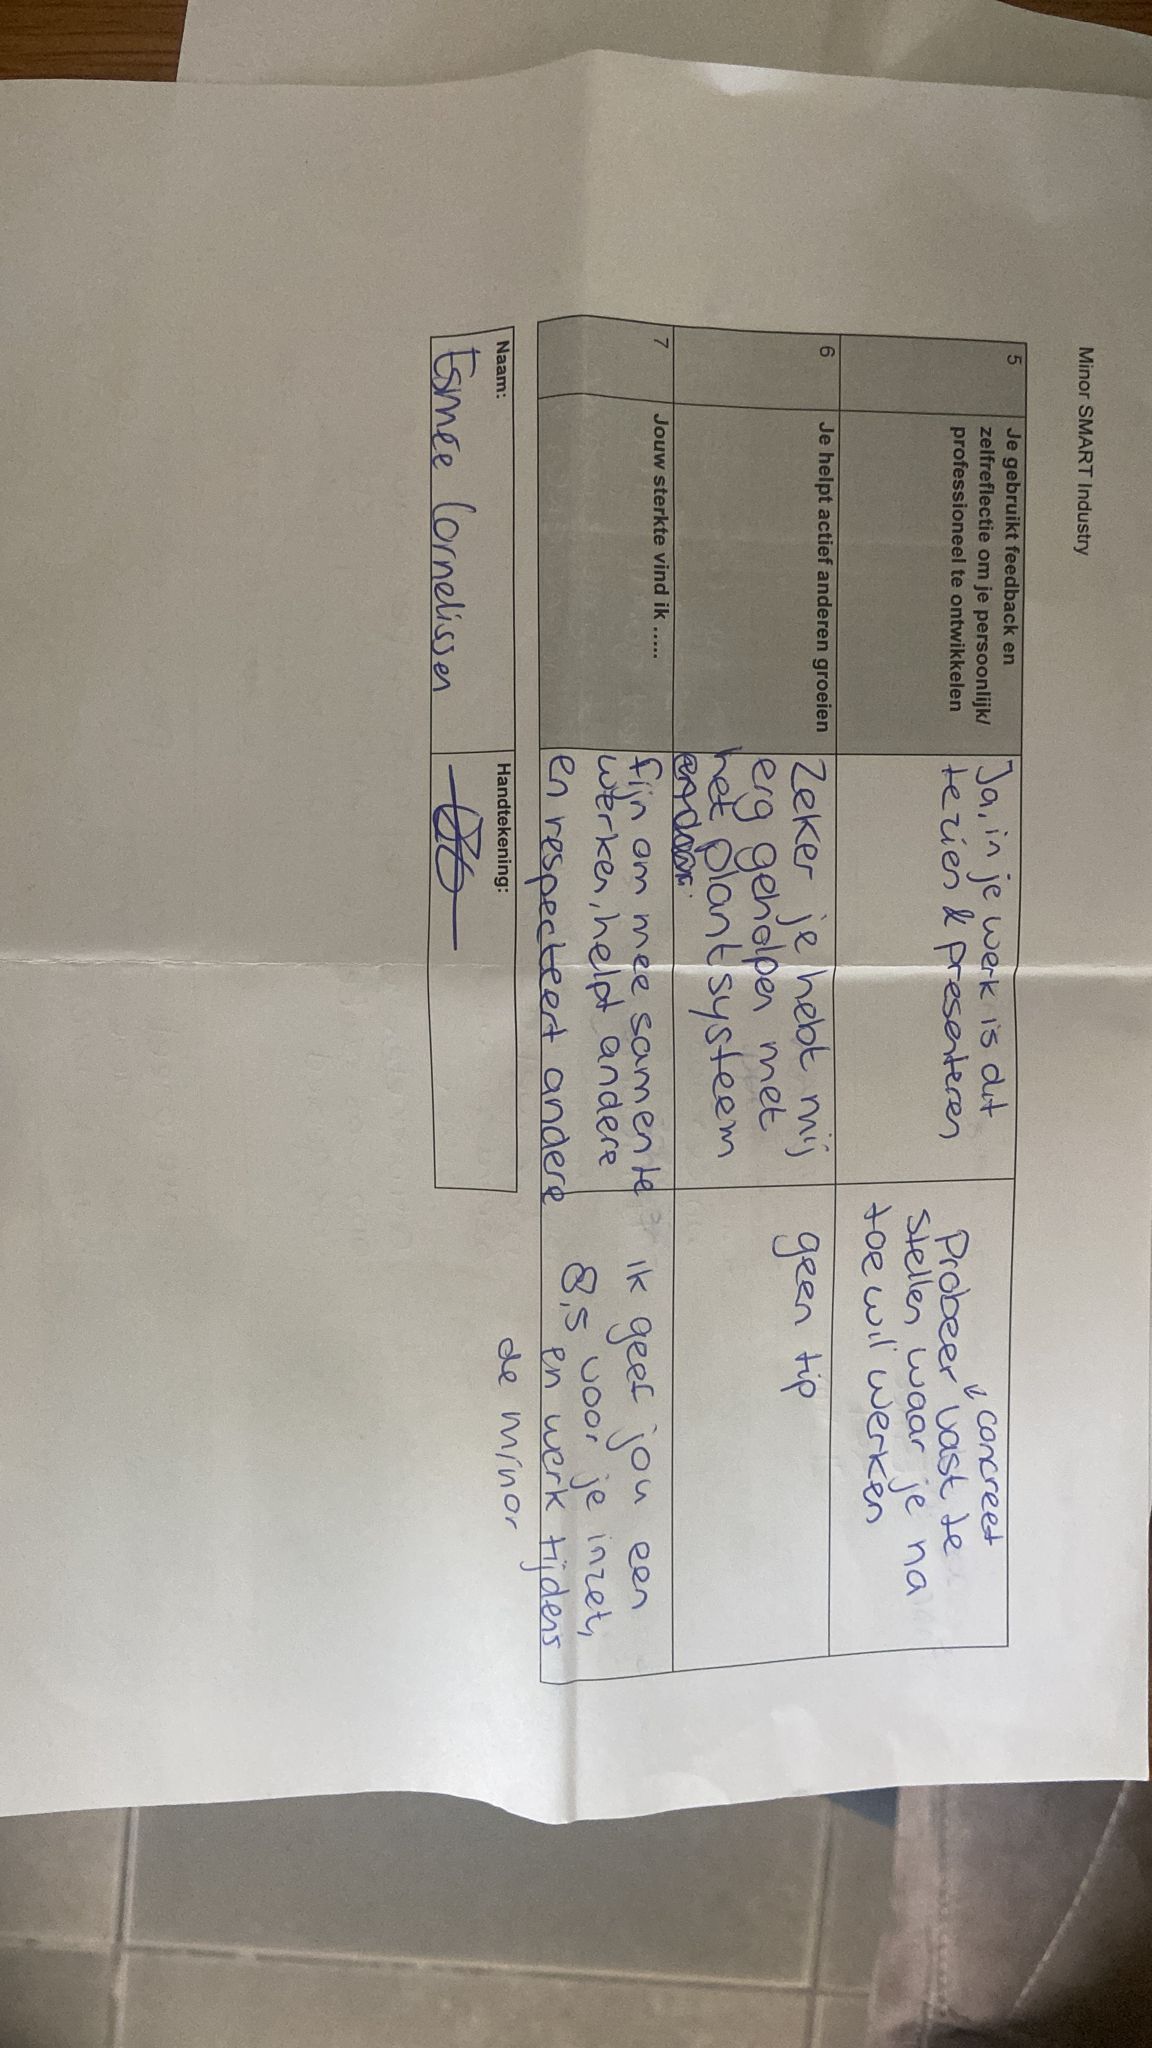 Minor SMART Industry
5
Je gebruikt feedback en
zelfreflectie om je persoonlijk/
professioneel te ontwikkelen
Ja, in je werk is dit
te zien & presenteren
concreet
Probeer vast te
stellen waar je na
toe wil werken
6
Je helpt actief anderen groeien
Zeker je hebt mij
erg geholpen met
het plantsysteem
geen tip
7
Jouw sterkte vind ik .....
fijn om mee samen te
werken, helpt andere
en respecteert andere
ik geef jou een
8,5 voor je inzet,
en werk tijdens
de minor
Naam:
Esmée Cornelissen
Handtekening: